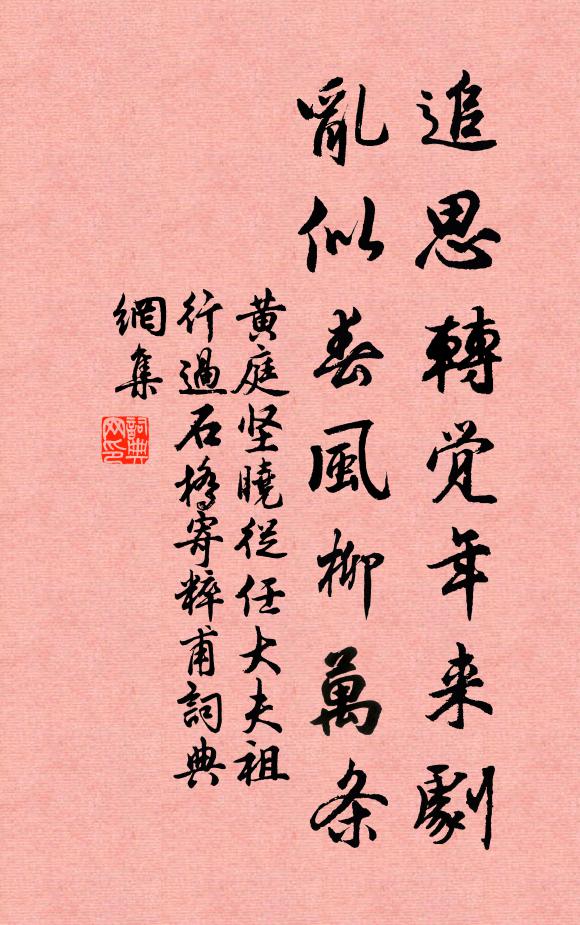 追思轉覺年来劇
亂似春風柳萬条
黄庭坚曉從任大夫祖
行過石橋寄粹甫詞典
網集
詞典
网印